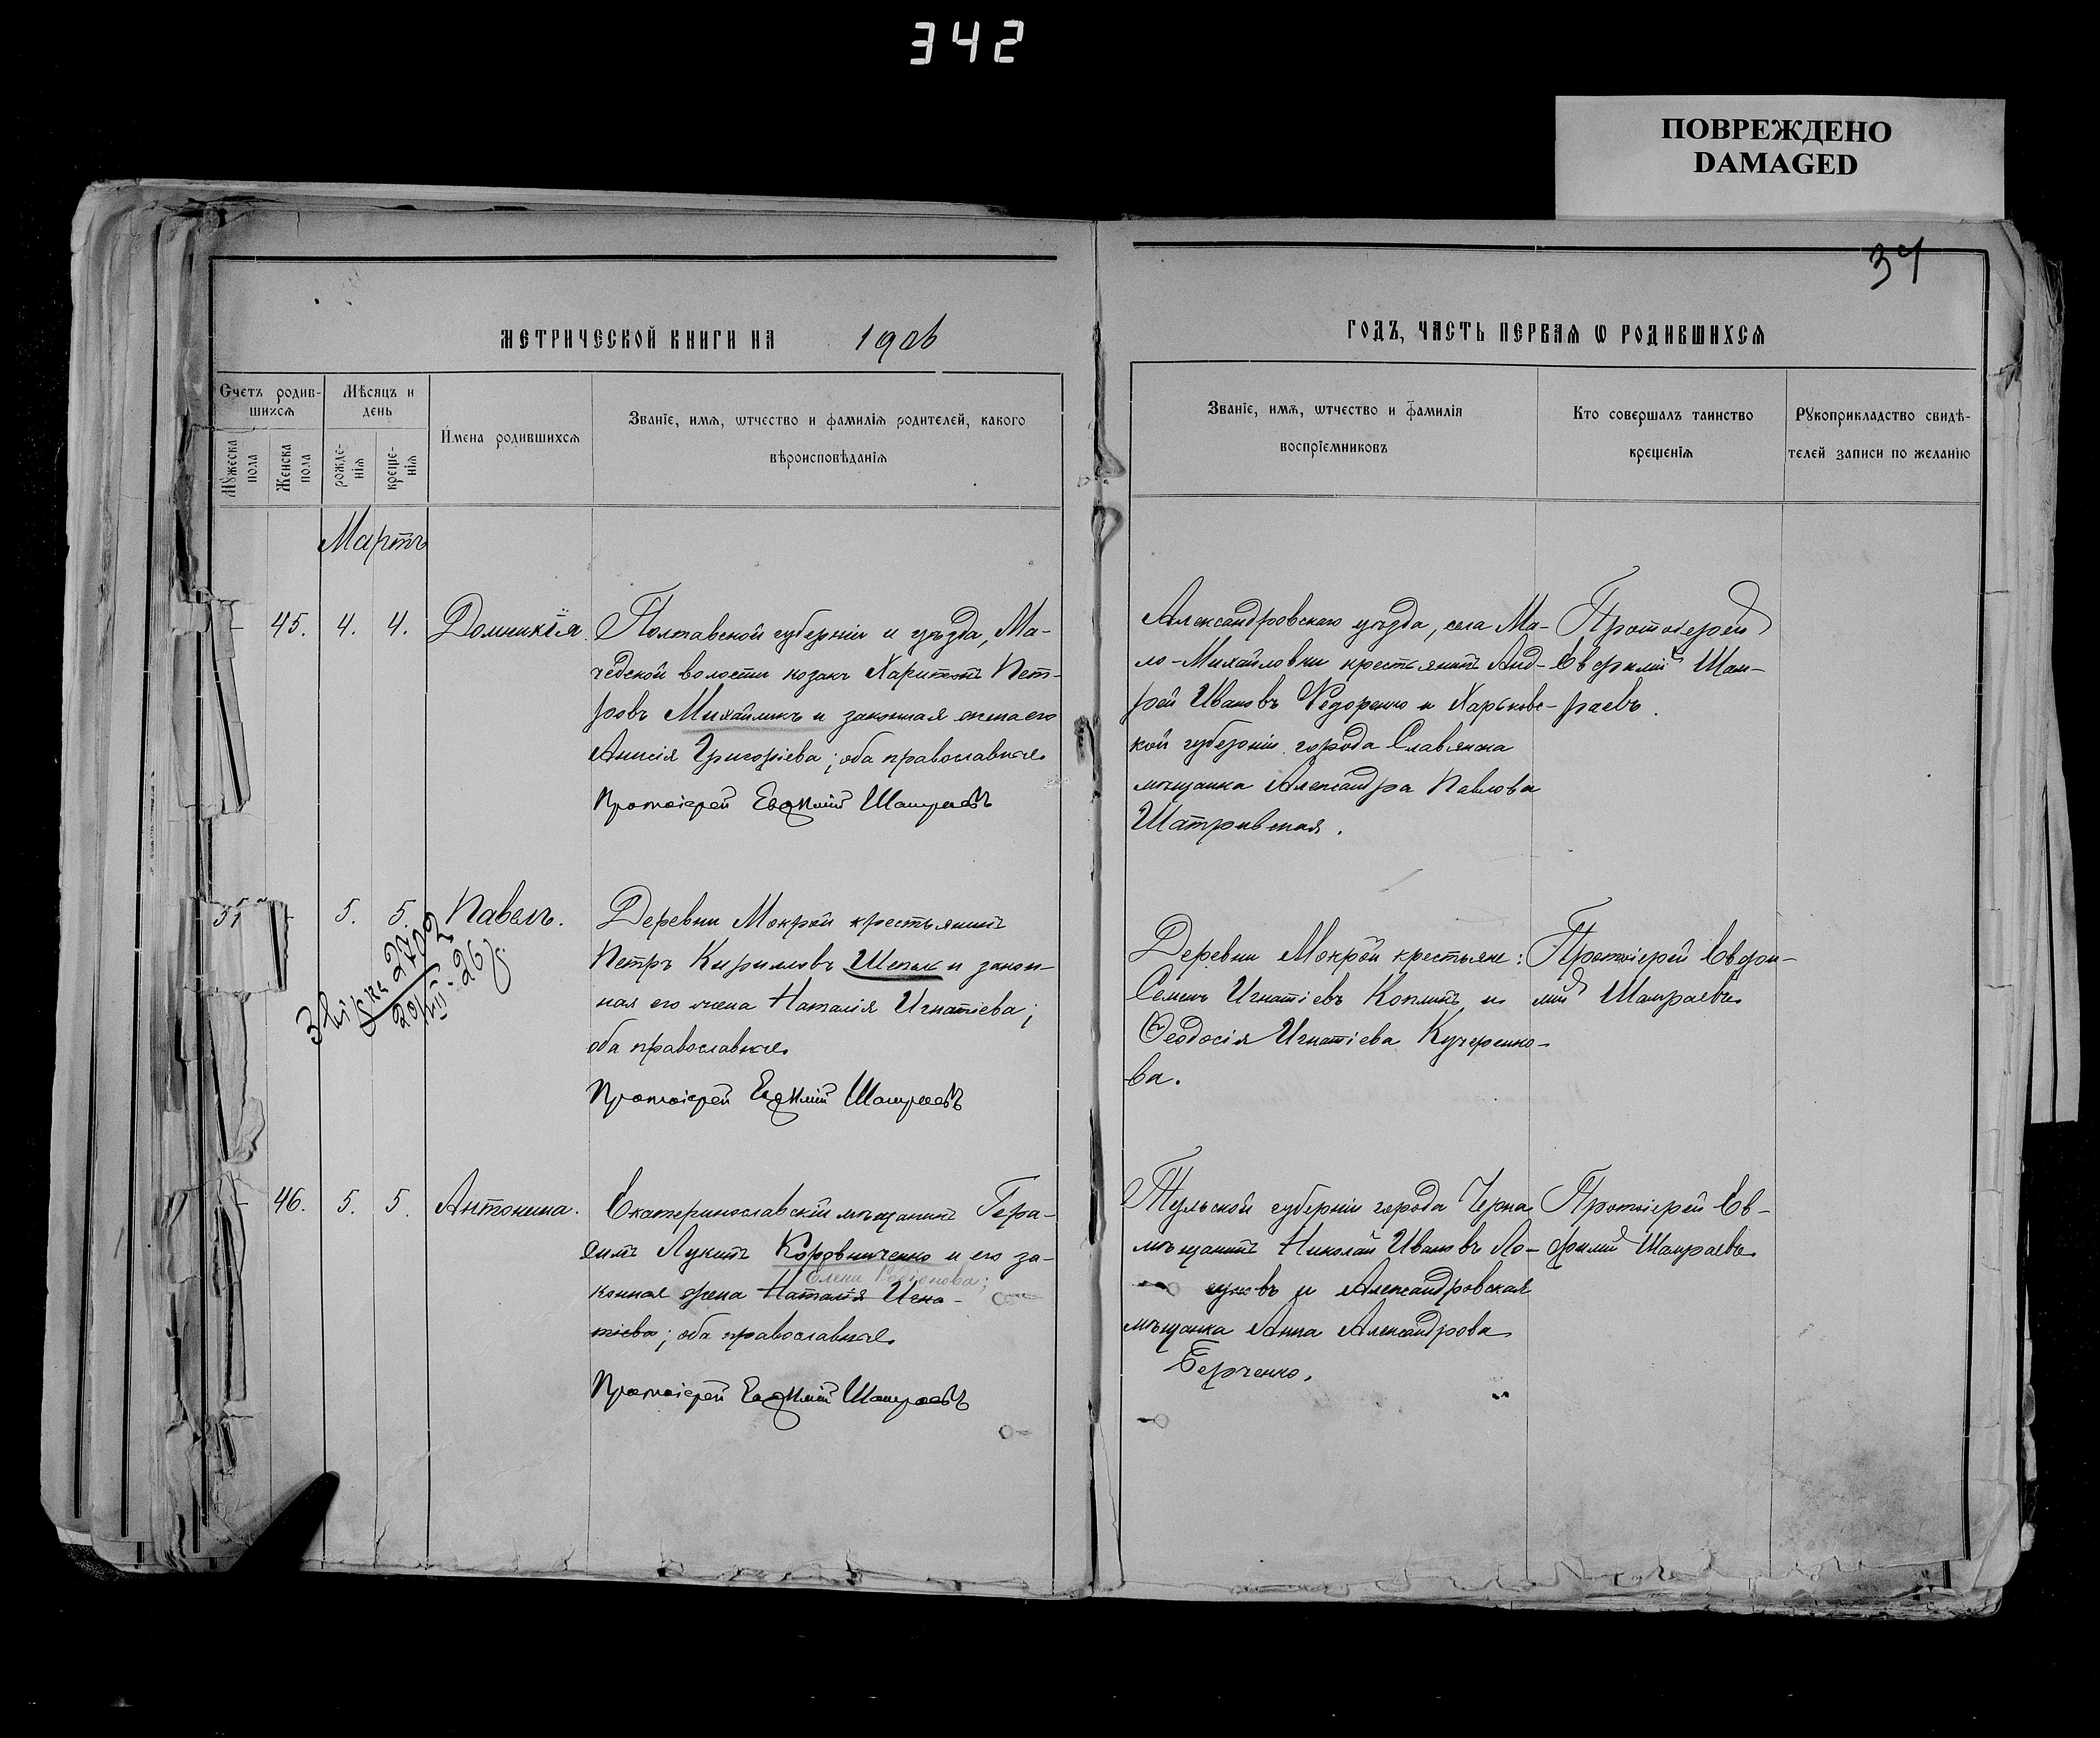 342
ПОВРЕЖДЕНО
DAMAGED
34
МЕТРИЧЕСКОЙ КНИГИ НА 1906
ГОДЪ, ЧАСТЬ ПЕРВАѦ Ѡ РОДИВШИХСѦ
Счетъ родив-
шихсѧ
Мѣсяцъ и
день
Мꙋжеска
пола
Женска
пола
рожде-
нїѧ
креще-
нїѧ
Имена родившихсѧ
Званїе, имѧ, ѡтчество и фамилїѧ родителей, какого
вѣроисповѣданїѧ
Званїе, имѧ, ѡтчество и фамилїѧ
воспрїемниковъ
Кто совершалъ таинство
крещенїѧ
Рꙋкоприкладство свидѣ-
телей записи по желанїю
Мартъ
45. 4. 4. Домникія.
Полтавской губерніи и уѣзда, Ма-
чехской волости козакъ Харитонъ Пет-
ровъ Михайликъ и законная жена его
Анисія Григоріева; оба православные.
Протоіерей Евфимій Шамраевъ
Александровскаго уѣзда, села Ма-
ло-Михайловки крестьянинъ Анд-
рей Ивановъ Федоренко и Харьковс-
кой губерніи города Славянска
мѣщанка Александра Павлова
Протоіерей
Евфимій Шам-
раевъ.
51 5. 5. Павелъ.
2702
20/III-26
Деревни Мокрой крестьянинъ
Петръ Кирилловъ Шепель и закон-
ная его жена Наталія Игнатіева;
оба православные.
Протоіерей Евфимій Шамраевъ
Деревни Мокрой крестьяне:
Семенъ Игнатіевъ Коплинъ и
Ѳеодосія Игнатіева Кучеренко-
ва.
Протоіерей Евфи-
мій Шамраевъ.
46. 5. 5. Антонина.
Екатеринославскій мѣщанинъ Гера-
симъ Лукинъ Коровниченко и его за-
Елена Родіонова;
конная жена Наталія Игна-
тіева; оба православные.
Протоіерей Евфимій Шамраевъ
Тульской губерніи города Черна
мѣщанинъ Николай Ивановъ Ло-
и Александровская
мѣщанка Анна Александрова
Берченко.
Протоіерей Ев-
фимій Шамраевъ.